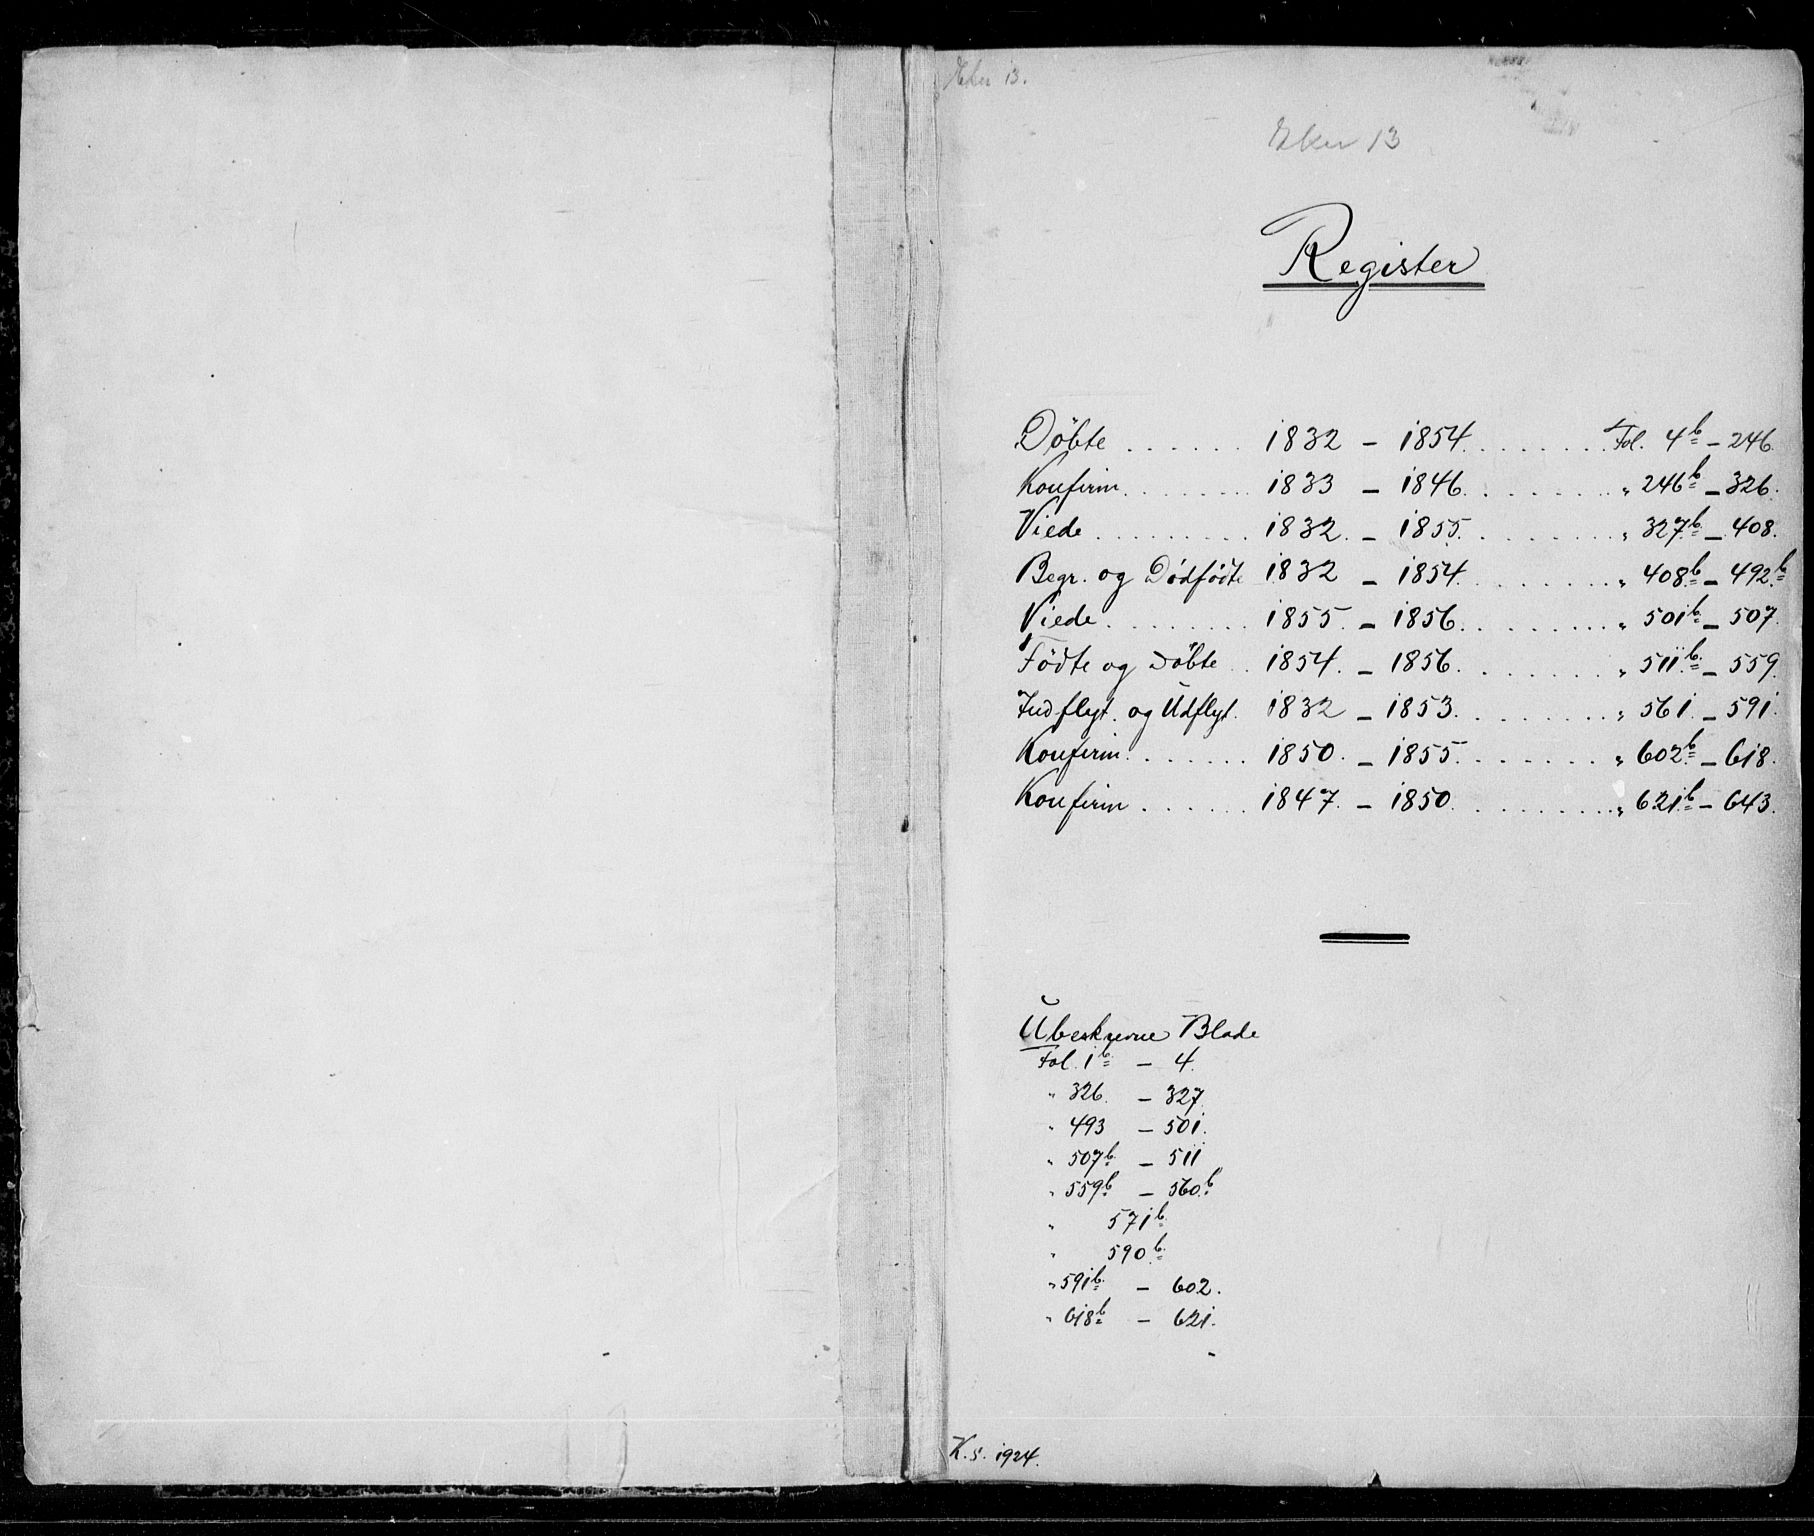 Eker 13.
Eker 13
Register
Döbte . . . . . . 1832 – 1854. . . . . . . . Fol. 4b – 246.
Konfirm. . . . . . . . 1833 – 1846. . . . . . . . " 246b – 326.
Viede . . . . . . . . . 1832. – 1855. . . . . . . . " 327b – 408.
Begr. og Dödfödte 1832 – 1854. . . . . . . . " 408b – 492b
Viede. . . . . . . . . 1855. – 1856. . . . . . . . " 501b – 507.
Födte og Döbte . . 1854. – 1856. . . . . . . . " 511b – 559.
Indflyt. og Udflyt. 1832 – 1853. . . . . . . . " 561. – 591.
Konfirm. . . . . . . 1850. – 1855. . . . . . . . " 602b – 618.
Konfirm . . . . . . 1847. – 1850. . . . . . . . " 621b – 643.
Ubeskrevne Blade
Fol. 1b – 4.
" 326. – 327.
" 493 – 501.
" 507b – 511
" 559b – 560b
" 571b
" 590b
" 591b – 602.
" 618b – 621.
K. S. 1924.